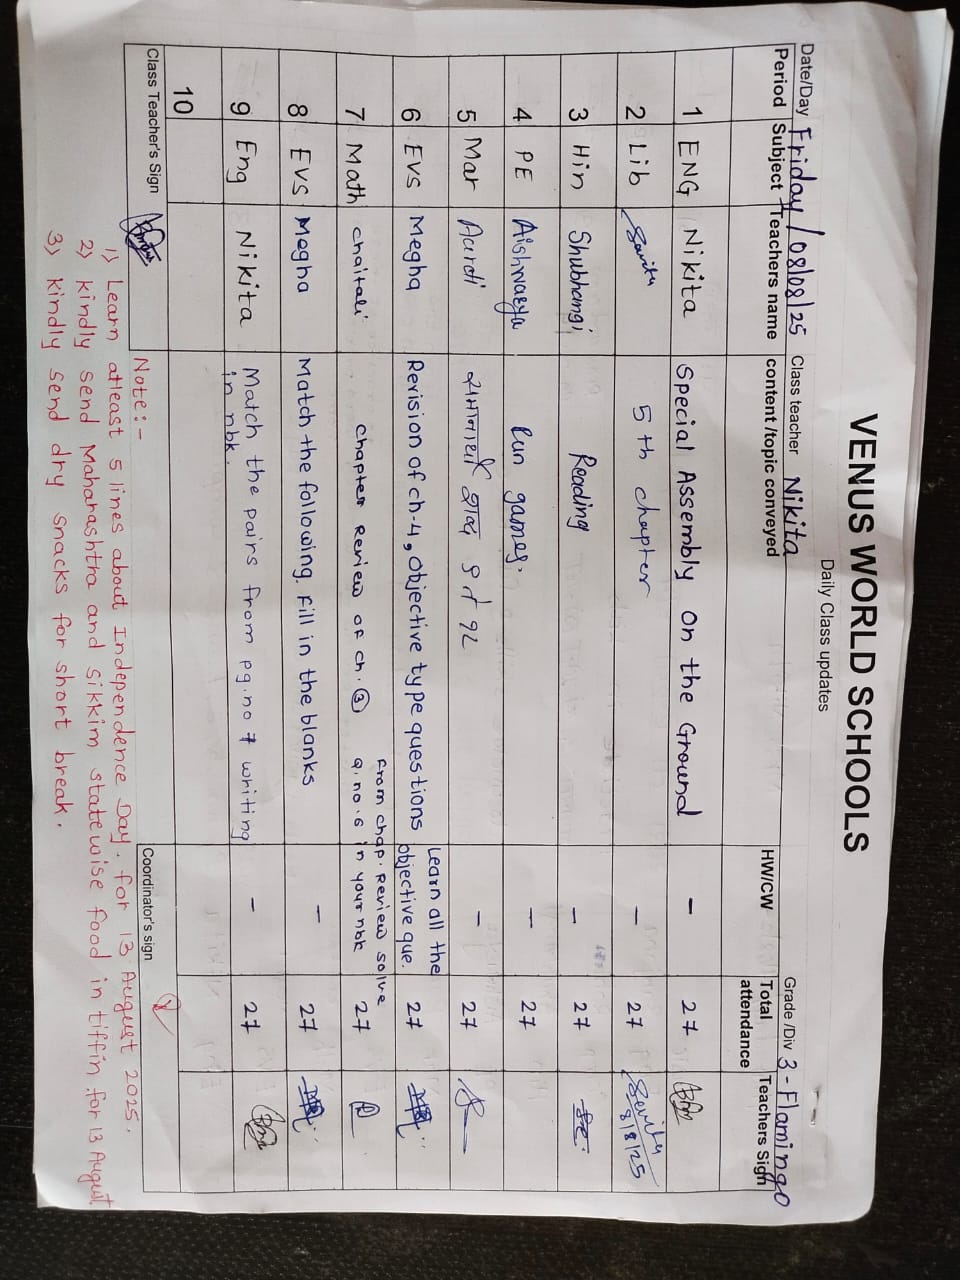 VENUS WORLD SCHOOLS
Daily Class updates
Date/Day Friday/08/08/25 Class teacher Nikita Grade /Div 3-Flamingo
Period Subject Teachers name content /topic conveyed HW/CW Total attendance Teachers Sign
1 ENG Nikita Special Assembly on the Ground - 27
2 Lib Savita 5th chapter - 27 Savita 8/8/25
3 Hin Shubhangi Reading - 27
4 PE Aishwarya Fun games. - 27
5 Mar Aarti समानार्थी शब्द १ ते १२ - 27
6 EVS Megha Revision of ch-4, objective type questions Learn all the objective que. 27
7 Math chaitali chapter Review of ch. 3 From chap. Review solve q.no.6 in your nbk 27
8 EVS Megha Match the following. Fill in the blanks - 27
9 Eng Nikita Match the pairs from pg.no 7 writing in nbk. - 27
10
Class Teacher's Sign Coordinator's sign
Note:-
1) Learn atleast 5 lines about Independence Day. for 13 August 2025.
2) kindly send Maharashtra and Sikkim statewise food in tiffin for 13 August
3) kindly send dry snacks for short break.